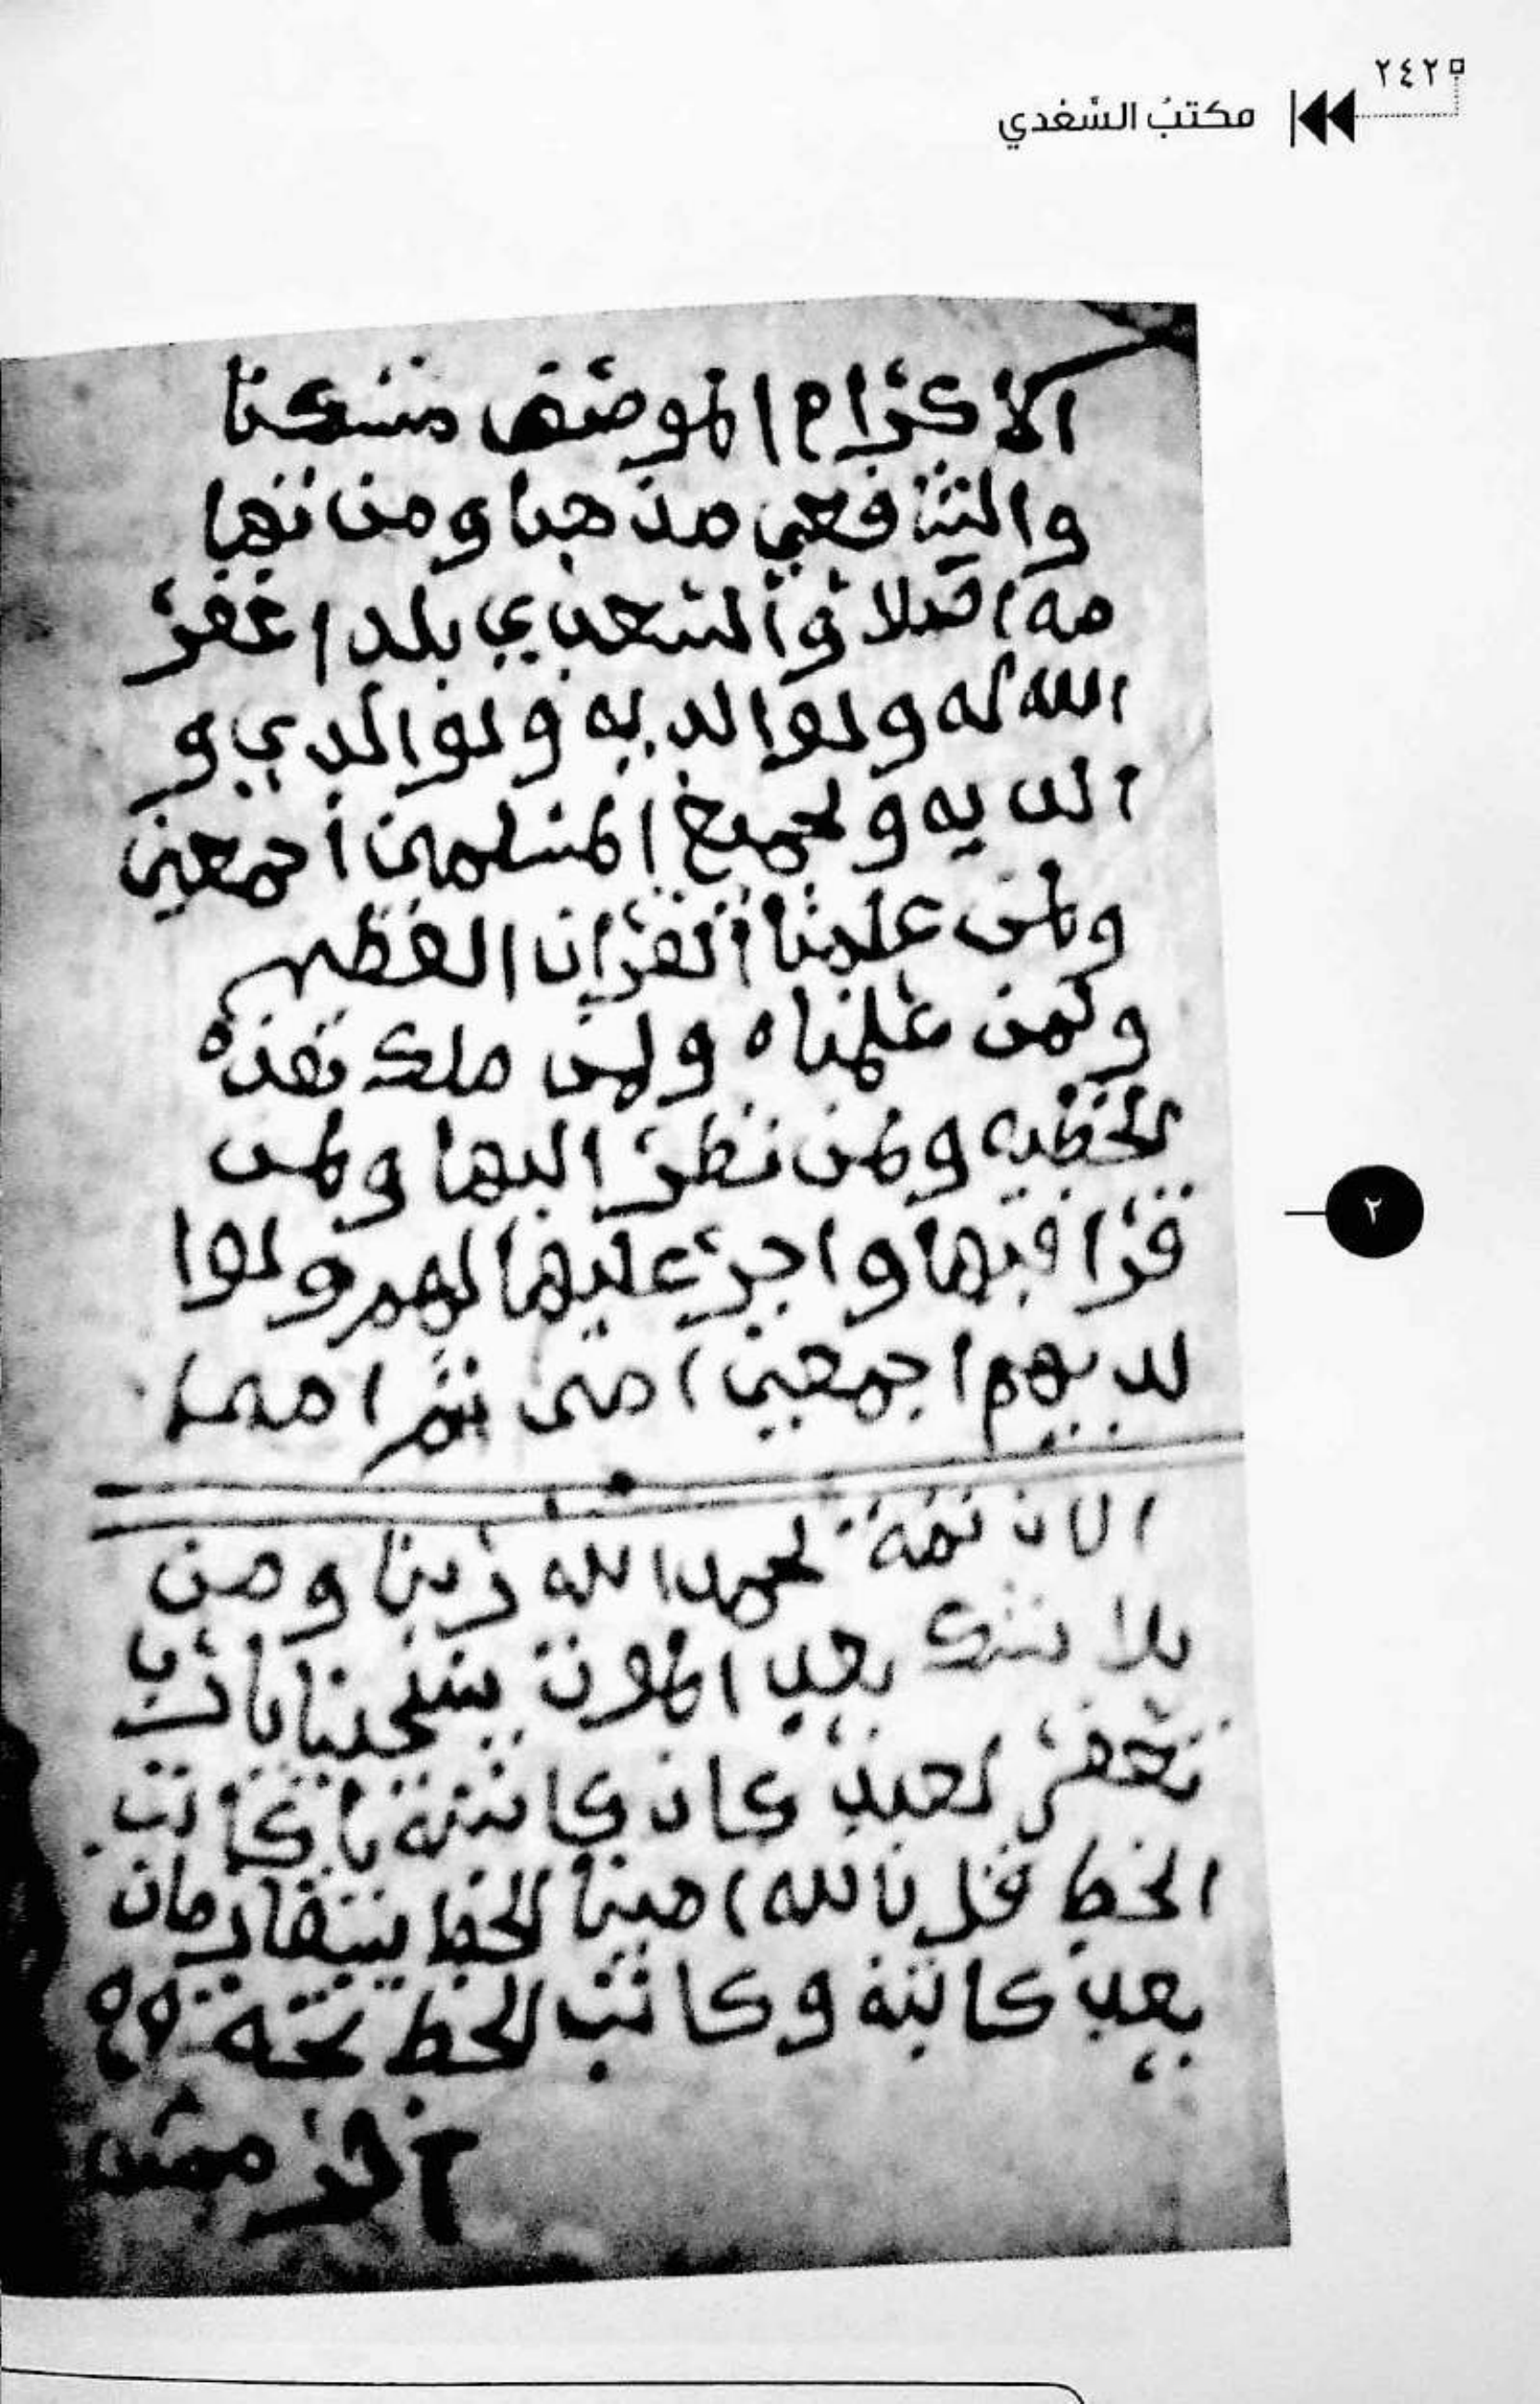 ٢٤٢
مكتبُ السَّغدي
الاكرام الموصقى مسكنا
والشافعي مذهبا ومن تهامه
اصلا والسعدي بلدا غفر
الله له ولوالديه ولوالدي و
الديه ولجميع المسلمين اجمعين
ولمن علمنا القران العظيم
ولمن علمناه ولمن ملك
الخطبه ولمن نظر اليها ولمن
قرا فيها واجر عليها لهم ولوا
لديهم اجمعين امين ثم امين
الان تمة لحمد الله ربنا ومن
بلا شك بعد الموت يارب
تغفر لعبد كان كاتبه يا كاتب
الخط قل بالله امينا الخط زمان
بعد كاتبه وكاتب الخط تحة
٢